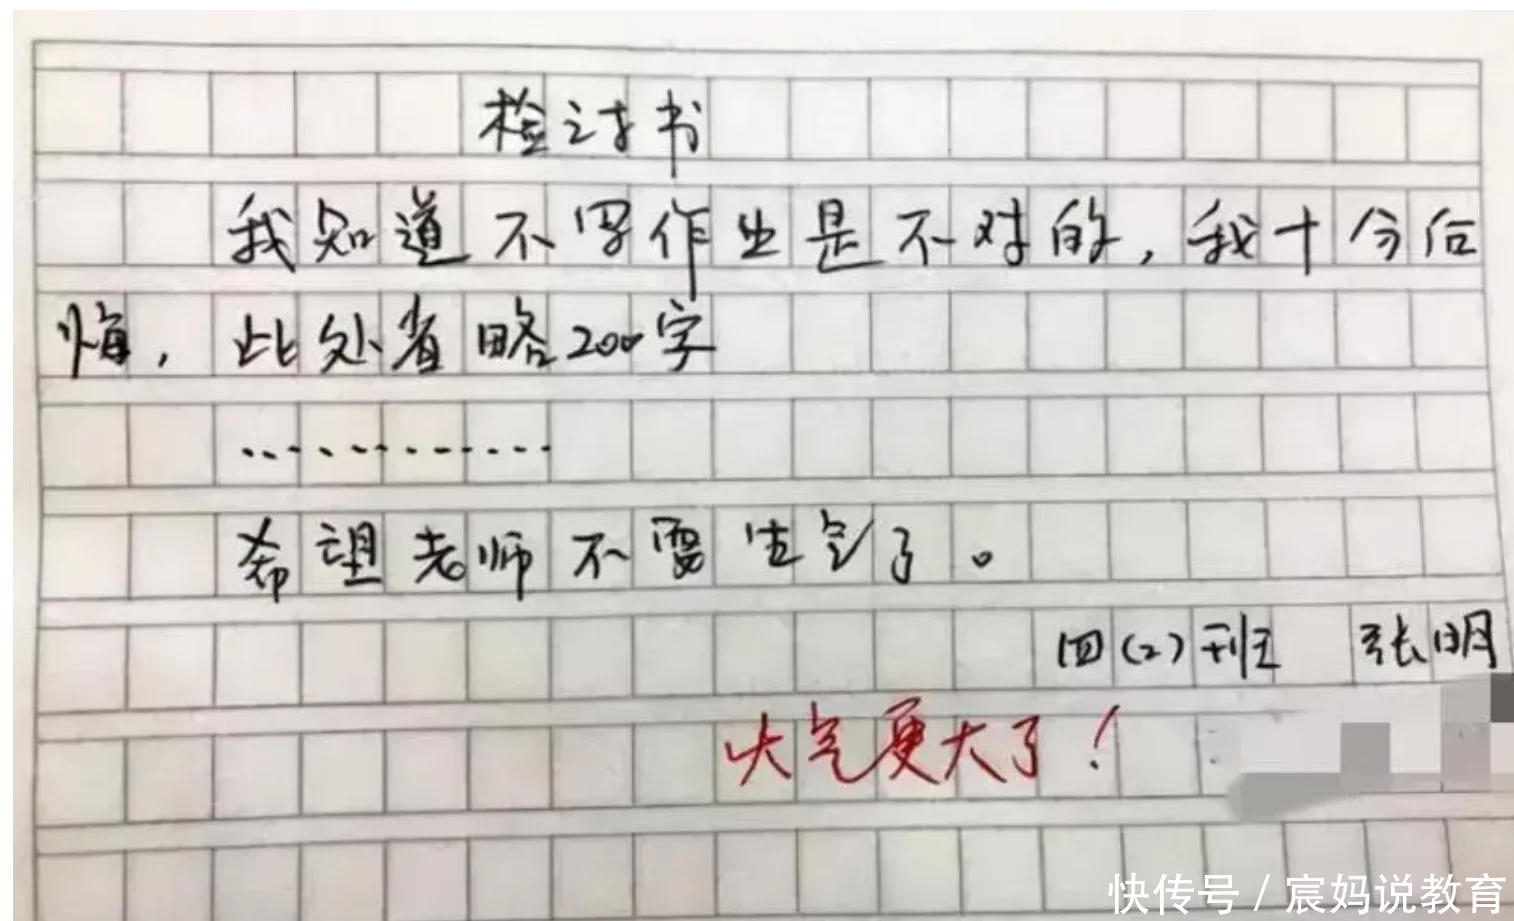 检讨书
我知道不写作业是不对的，我十分后
悔，此处省略200字
…………
希望老师不要生气了。
四(2)班 张明
火气更大了！
快传号 / 宸妈说教育